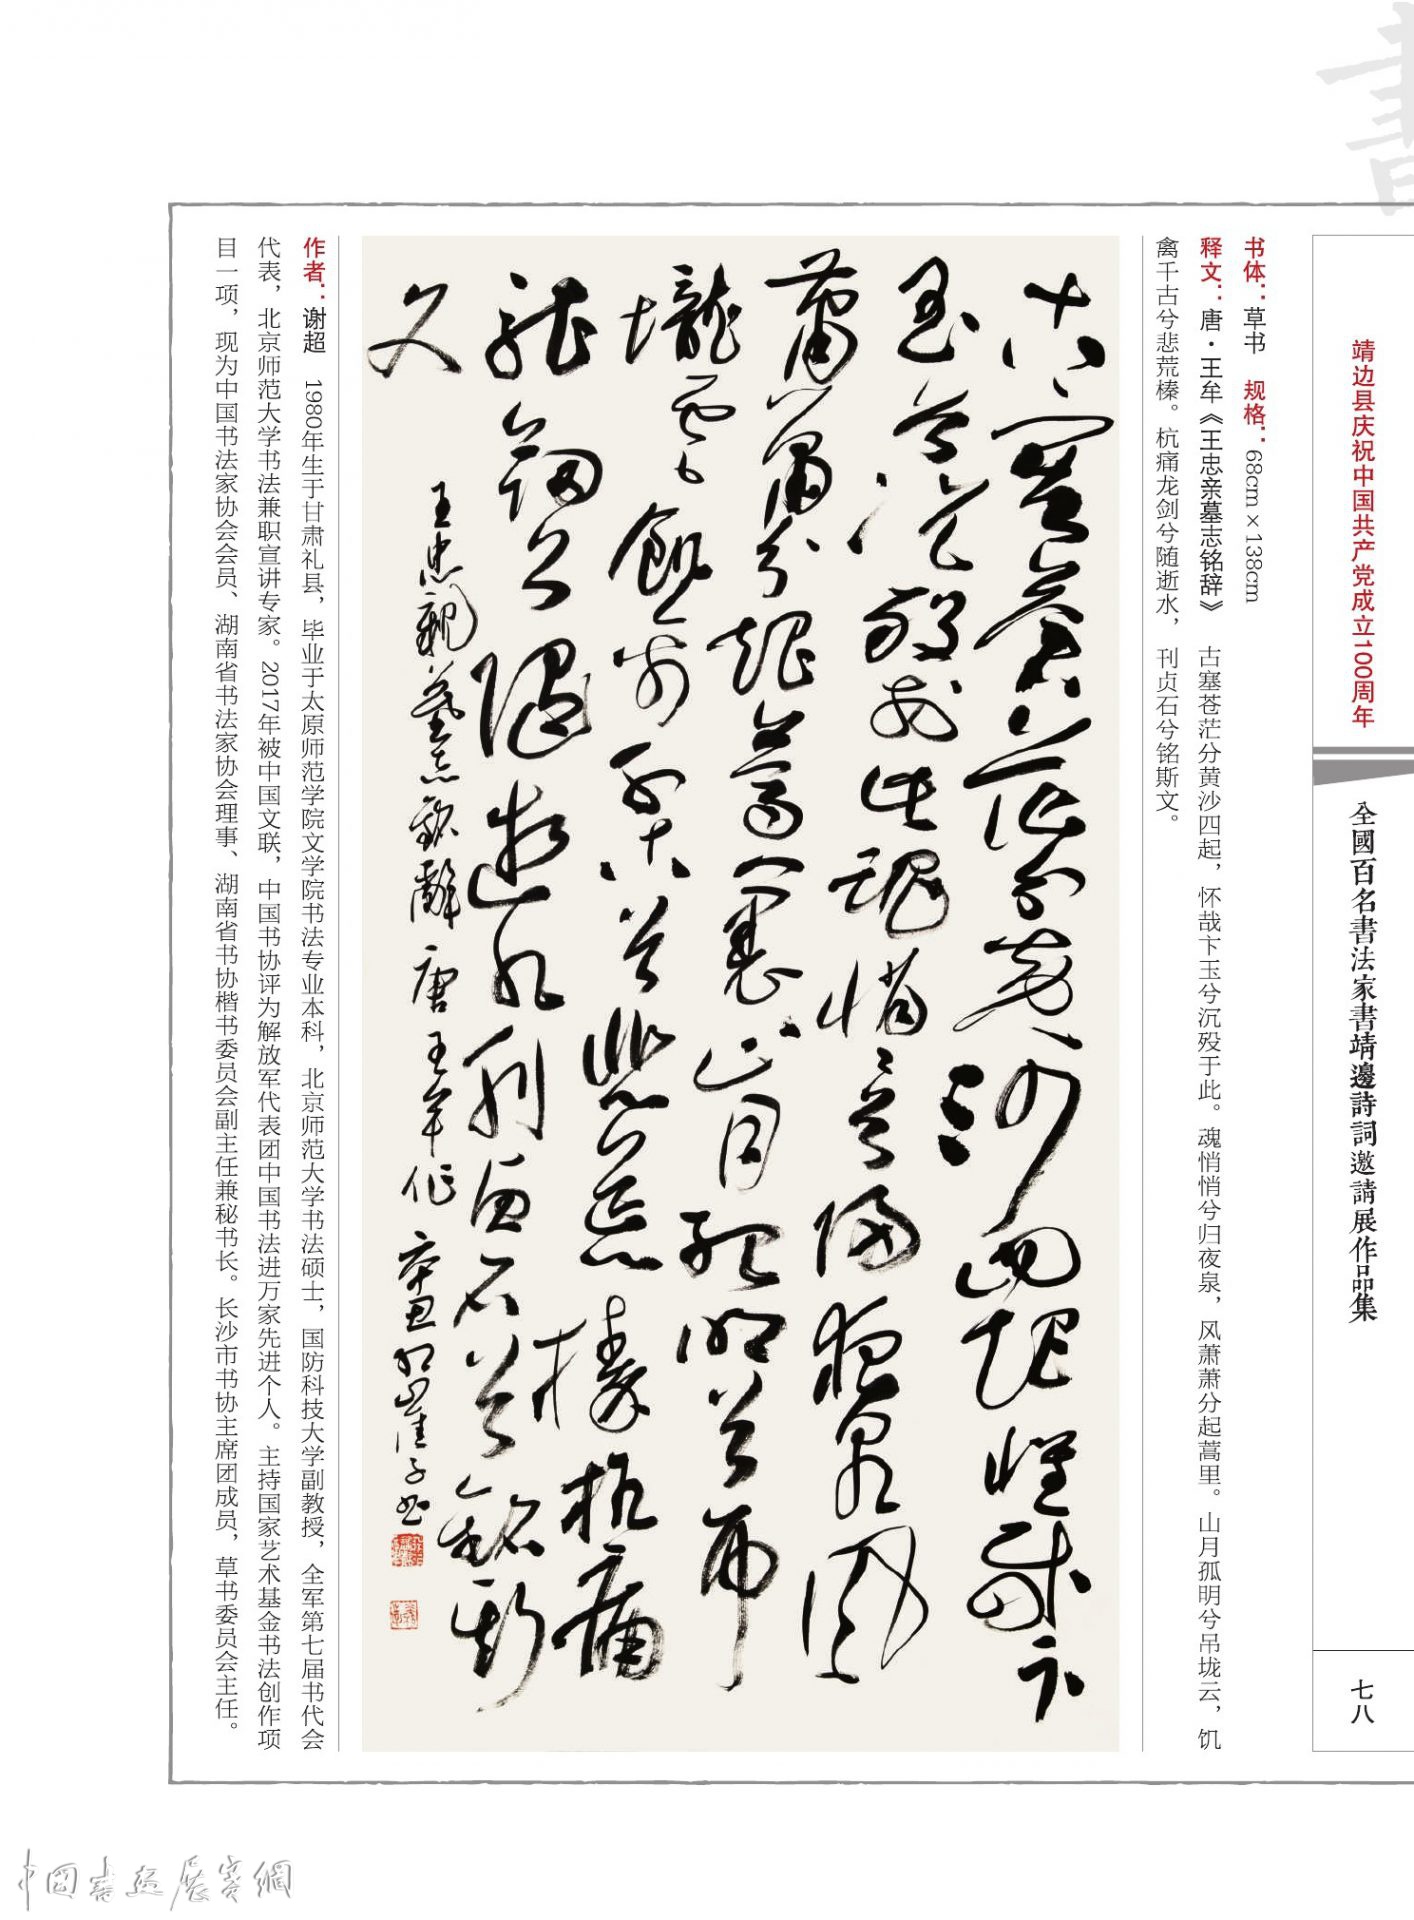 書
靖边县庆祝中国共产党成立100周年
全國百名書法家書靖邊詩詞邀請展作品集
七八
书体：草书 规格：68cm×138cm
释文：唐·王牟《王忠亲墓志铭辞》 古塞苍茫分黄沙四起，怀哉卞玉兮沉殁于此。魂悄悄兮归夜泉，风萧萧分起蒿里。山月孤明兮吊垅云，饥
禽千古兮悲荒榛。杭痛龙剑兮随逝水，刊贞石兮铭斯文。
古塞蒼茫兮黄沙四起懷哉卞
玉兮沉殁於此魂悄兮歸夜泉風
蕭蕭兮起蒿里山月孤明兮弔
壠雲飢禽千古兮悲荒榛杭痛
龍劍兮隨逝水刊貞石兮銘斯
文
王忠親墓志銘辭唐王牟作辛丑
作者：谢超 1980年生于甘肃礼县，毕业于太原师范学院文学院书法专业本科，北京师范大学书法硕士，国防科技大学副教授，全军第七届书代会
代表，北京师范大学书法兼职宣讲专家。2017年被中国文联，中国书协评为解放军代表团中国书法进万家先进个人。主持国家艺术基金书法创作项
目一项，现为中国书法家协会会员、湖南省书法家协会理事、湖南省书协楷书委员会副主任兼秘书长。长沙市书协主席团成员，草书委员会主任。
中國書畫展賽網